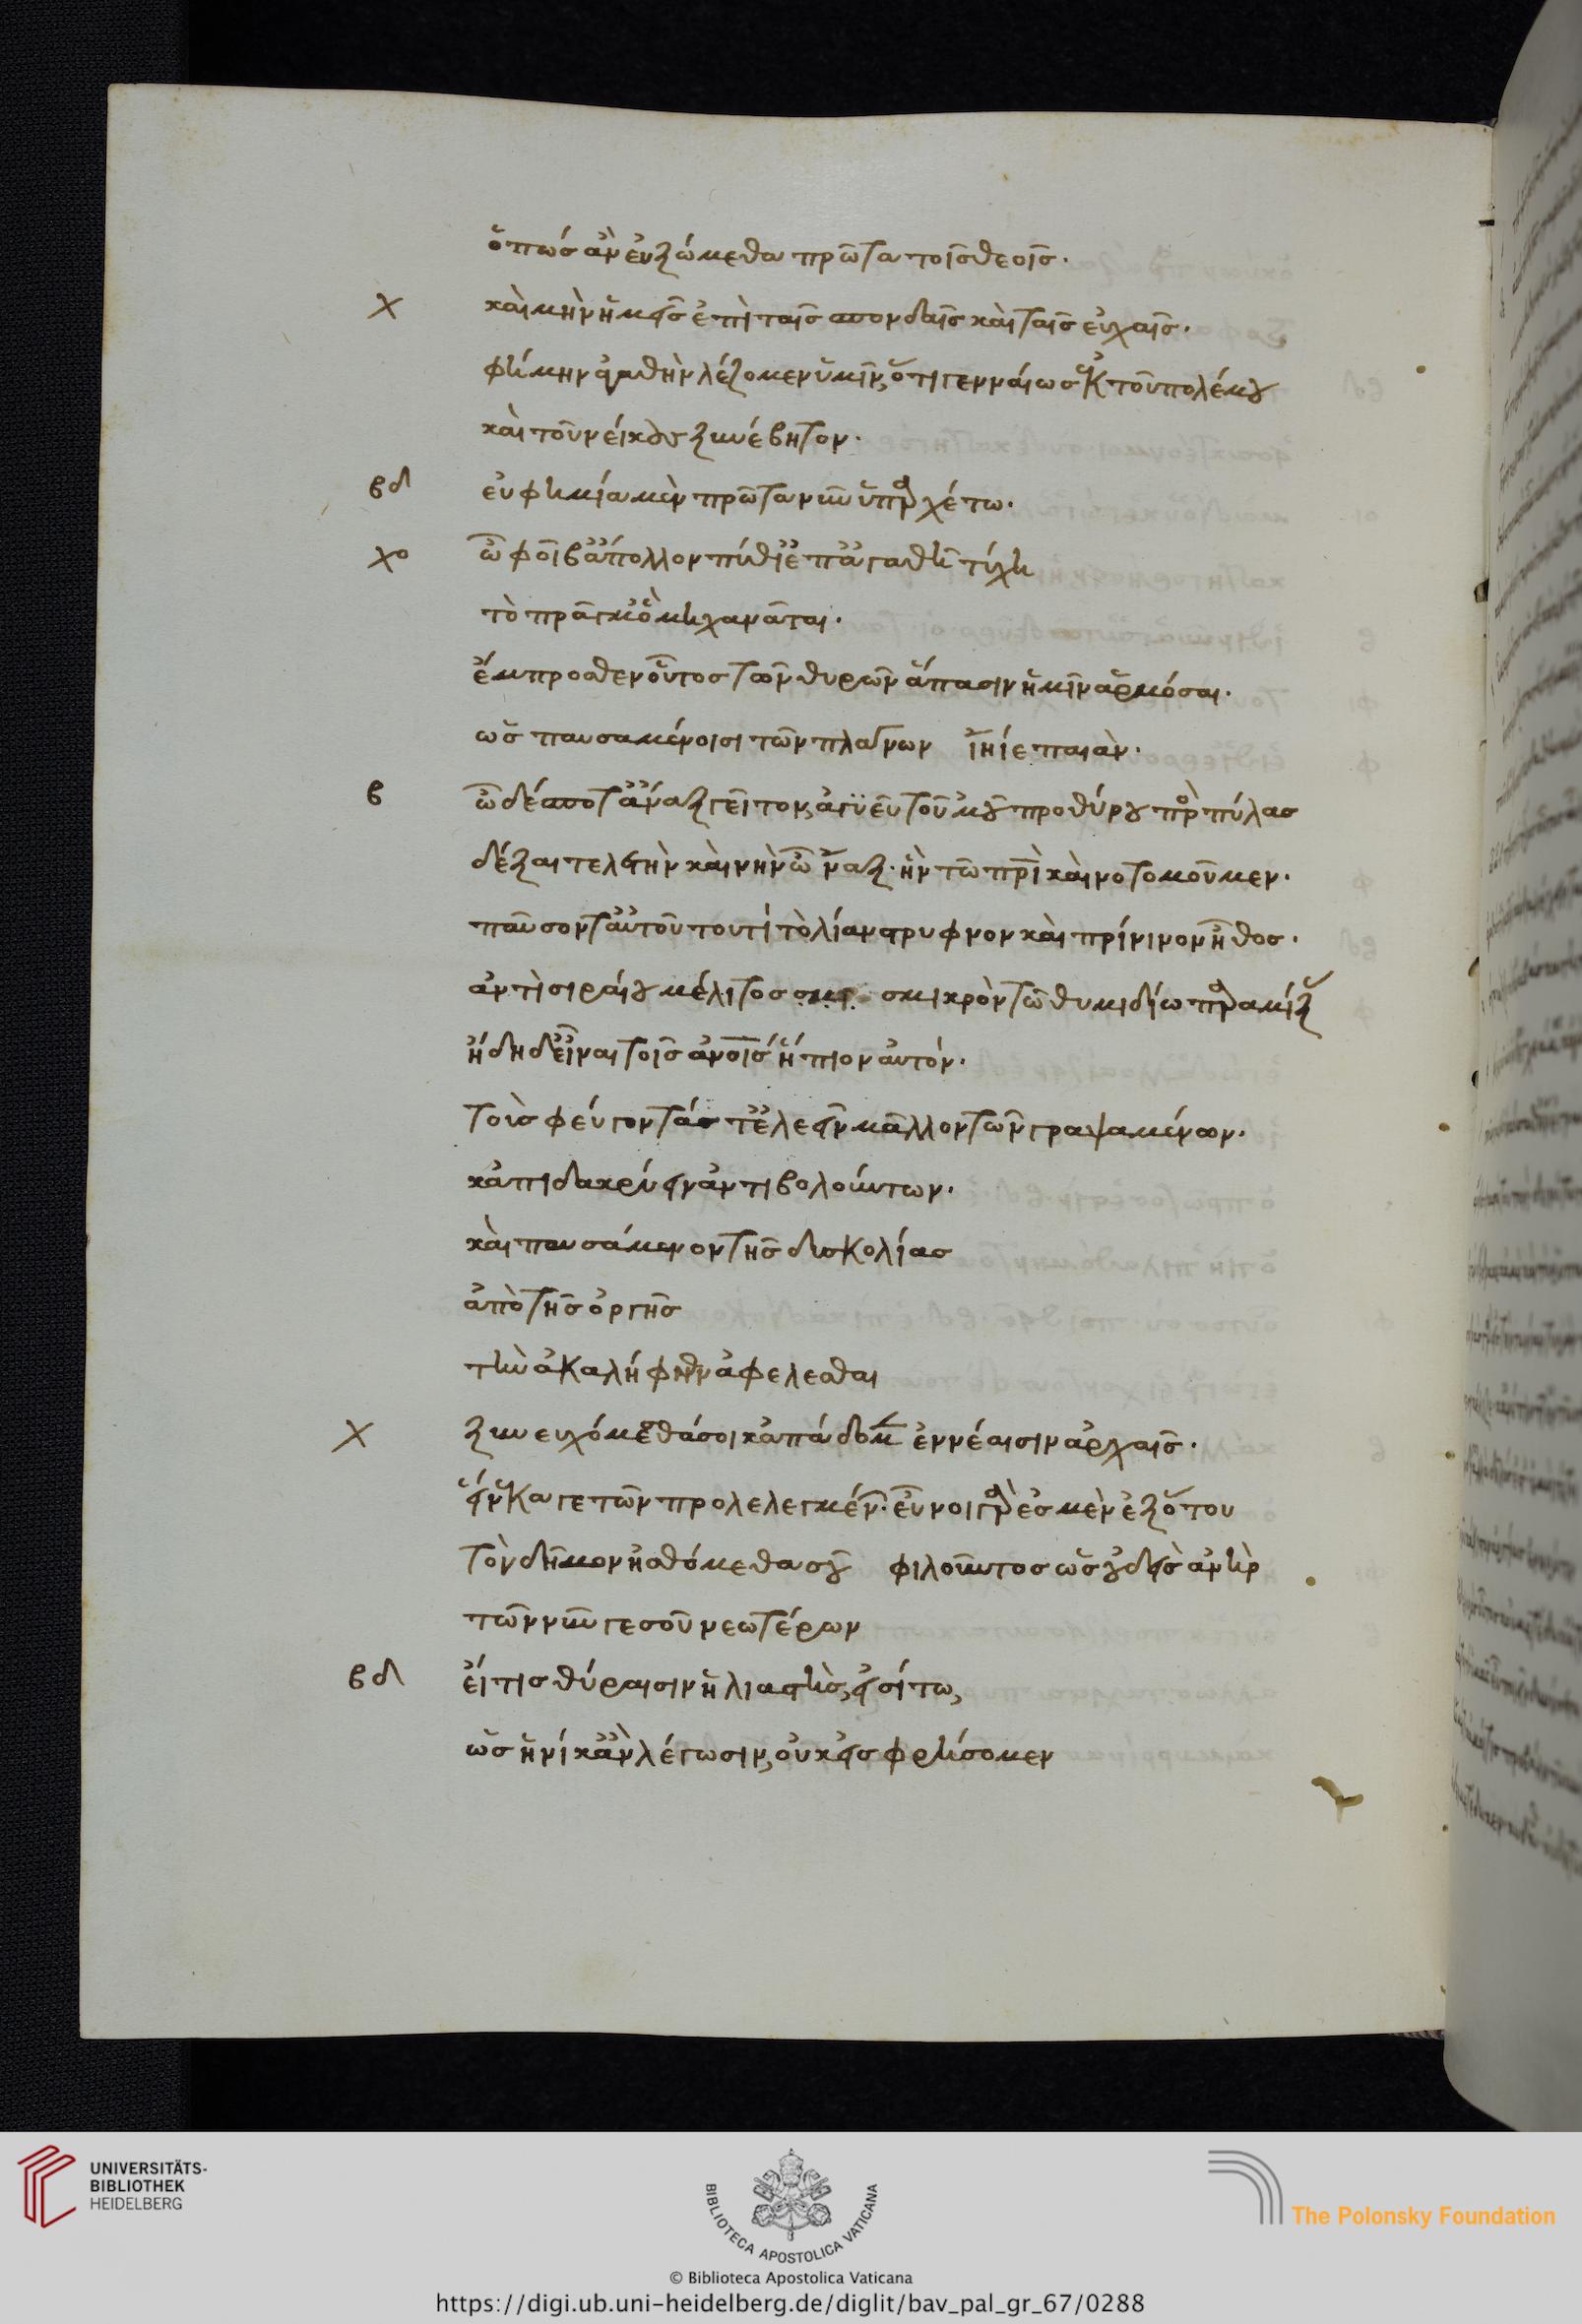 ὅπως ἂν εὐξώμεθα πρῶτα τοῖς θεοῖς.
χ καὶ μὴν ἡμεῖς ἐπὶ ταῖς σπονδαῖς καὶ ταῖς εὐχαῖς.
φήμην ἀγαθὴν λέξομεν ὑμῖν, ὅτι γενναίως ἐκ τοῦ πολέμου
καὶ τοῦ νείκους ξυνέβητον.
βδ εὐφημία μὲν πρῶτα νῦν ὑπαρχέτω.
χο ὦ φοῖβ' ἄπολλον πύθι' ἐπ' ἀγαθῆ τύχη
τὸ πρᾶγμ' ὃ μηχανᾶται.
ἔμπροσθεν οὗτος τῶν θυρῶν ἅπασιν ἡμῖν ἁρμόσαι.
ὡς παυσαμένοισι τῶν πλάνων ἰήϊε παιὰν.
β ὦ δέσποτ' ἄναξ γεῖτον, ἀγυεῦ τοῦ 'μοῦ προθύρου προπύλας
δέξαι τελετὴν καινὴν ὦ 'ναξ. ἣν τῶ πρὶ καινοτομοῦμεν.
παῦσόν τ' αὐτοῦ τουτὶ τὸ λίαν στρυφνὸν καὶ πρίνινον ἦθος.
ἀντὶ σιραίου μέλιτος σμι σμικρὸν τῶ θυμιδίω παραμίξ
ἤδη δ' εἶναι τοῖς ἀνοις ἤπιον αὐτόν.
τοὺς φεύγοντάς τ' ἐλεεῖν μᾶλλον τῶν γραψαμένων.
κἀπιδακρύειν ἀντιβολούντων.
καὶ παυσάμενον τῆς δυσκολίας
ἀπὸ τῆς ὀργῆς
τὴν ἀκαλήφην ἀφελεσθαι
χ ξυνευχόμεθά σοι κἀπάδομ ἐννέαισιν ἀρχαῖς.
εἵνεκά γε τῶν προλελεγμέν. εὖνοι γὰρ ἐσμὲν ἐξ ὅτου
τὸν δῆμον ἠσθόμεθα σοῦ φιλοῦντος ὡς οὐδεὶς ἀνὴρ
τῶν νῦν γε σοῦ νεωτέρων
βδ εἴ τις θύραισιν ἡλιαστὴς, εἰσίτω,
ὡς ἡνίκ' ἂν λέγωσιν, οὐκ εἰσφρήσομεν
UNIVERSITÄTS-
BIBLIOTHEK
HEIDELBERG
BIBLIOTECA APOSTOLICA VATICANA
The Polonsky Foundation
© Biblioteca Apostolica Vaticana
https://digi.ub.uni-heidelberg.de/diglit/bav_pal_gr_67/0288